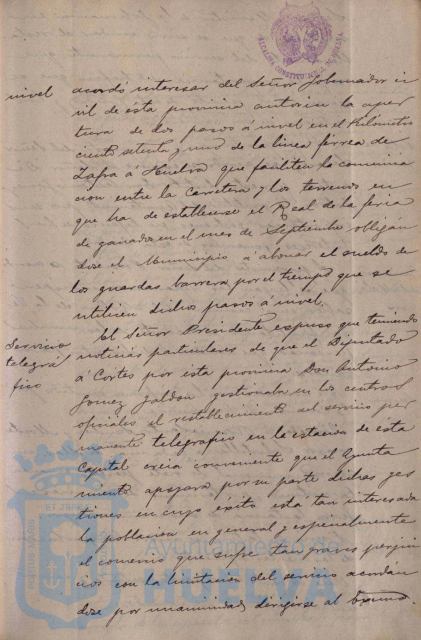 nivel
acordó interesar del Señor Gobernador ci
vil de ésta provincia autorice la aper
tura de dos pasos á nivel en el Kilómetro
ciento setenta y uno de la linea férrea de
Zafra á Huelva que faciliten la comunica
cion entre la Carretera y los terrenos en
que ha de establecerse el Real de la feria
de ganados en el mes de Septiembre obligán
dose el Municipio á abonar el sueldo de
los guardas barrera por el tiempo que se
utilicen dichos pasos á nivel.
Servicio
telegrá
fico
El Señor Presidente expuso que teniendo
noticias particulares de que el Diputado
á Cortes por esta provincia Don Antonio
Gomez Jaldon gestionaba en los centros
oficiales el restablecimiento del servicio per
manente telegrafico en la estacion de esta
Capital creia conveniente que el Ayunta
miento apoyara por su parte dichas ges
tiones en cuyo éxito está tan interesada
la poblacion en general y especialmente
el comercio que sufre tan graves perjui
cios con la limitacion del servicio acordán
dose por unanimidad dirigirse al Excmo.
Ayuntamiento de
HUELVA